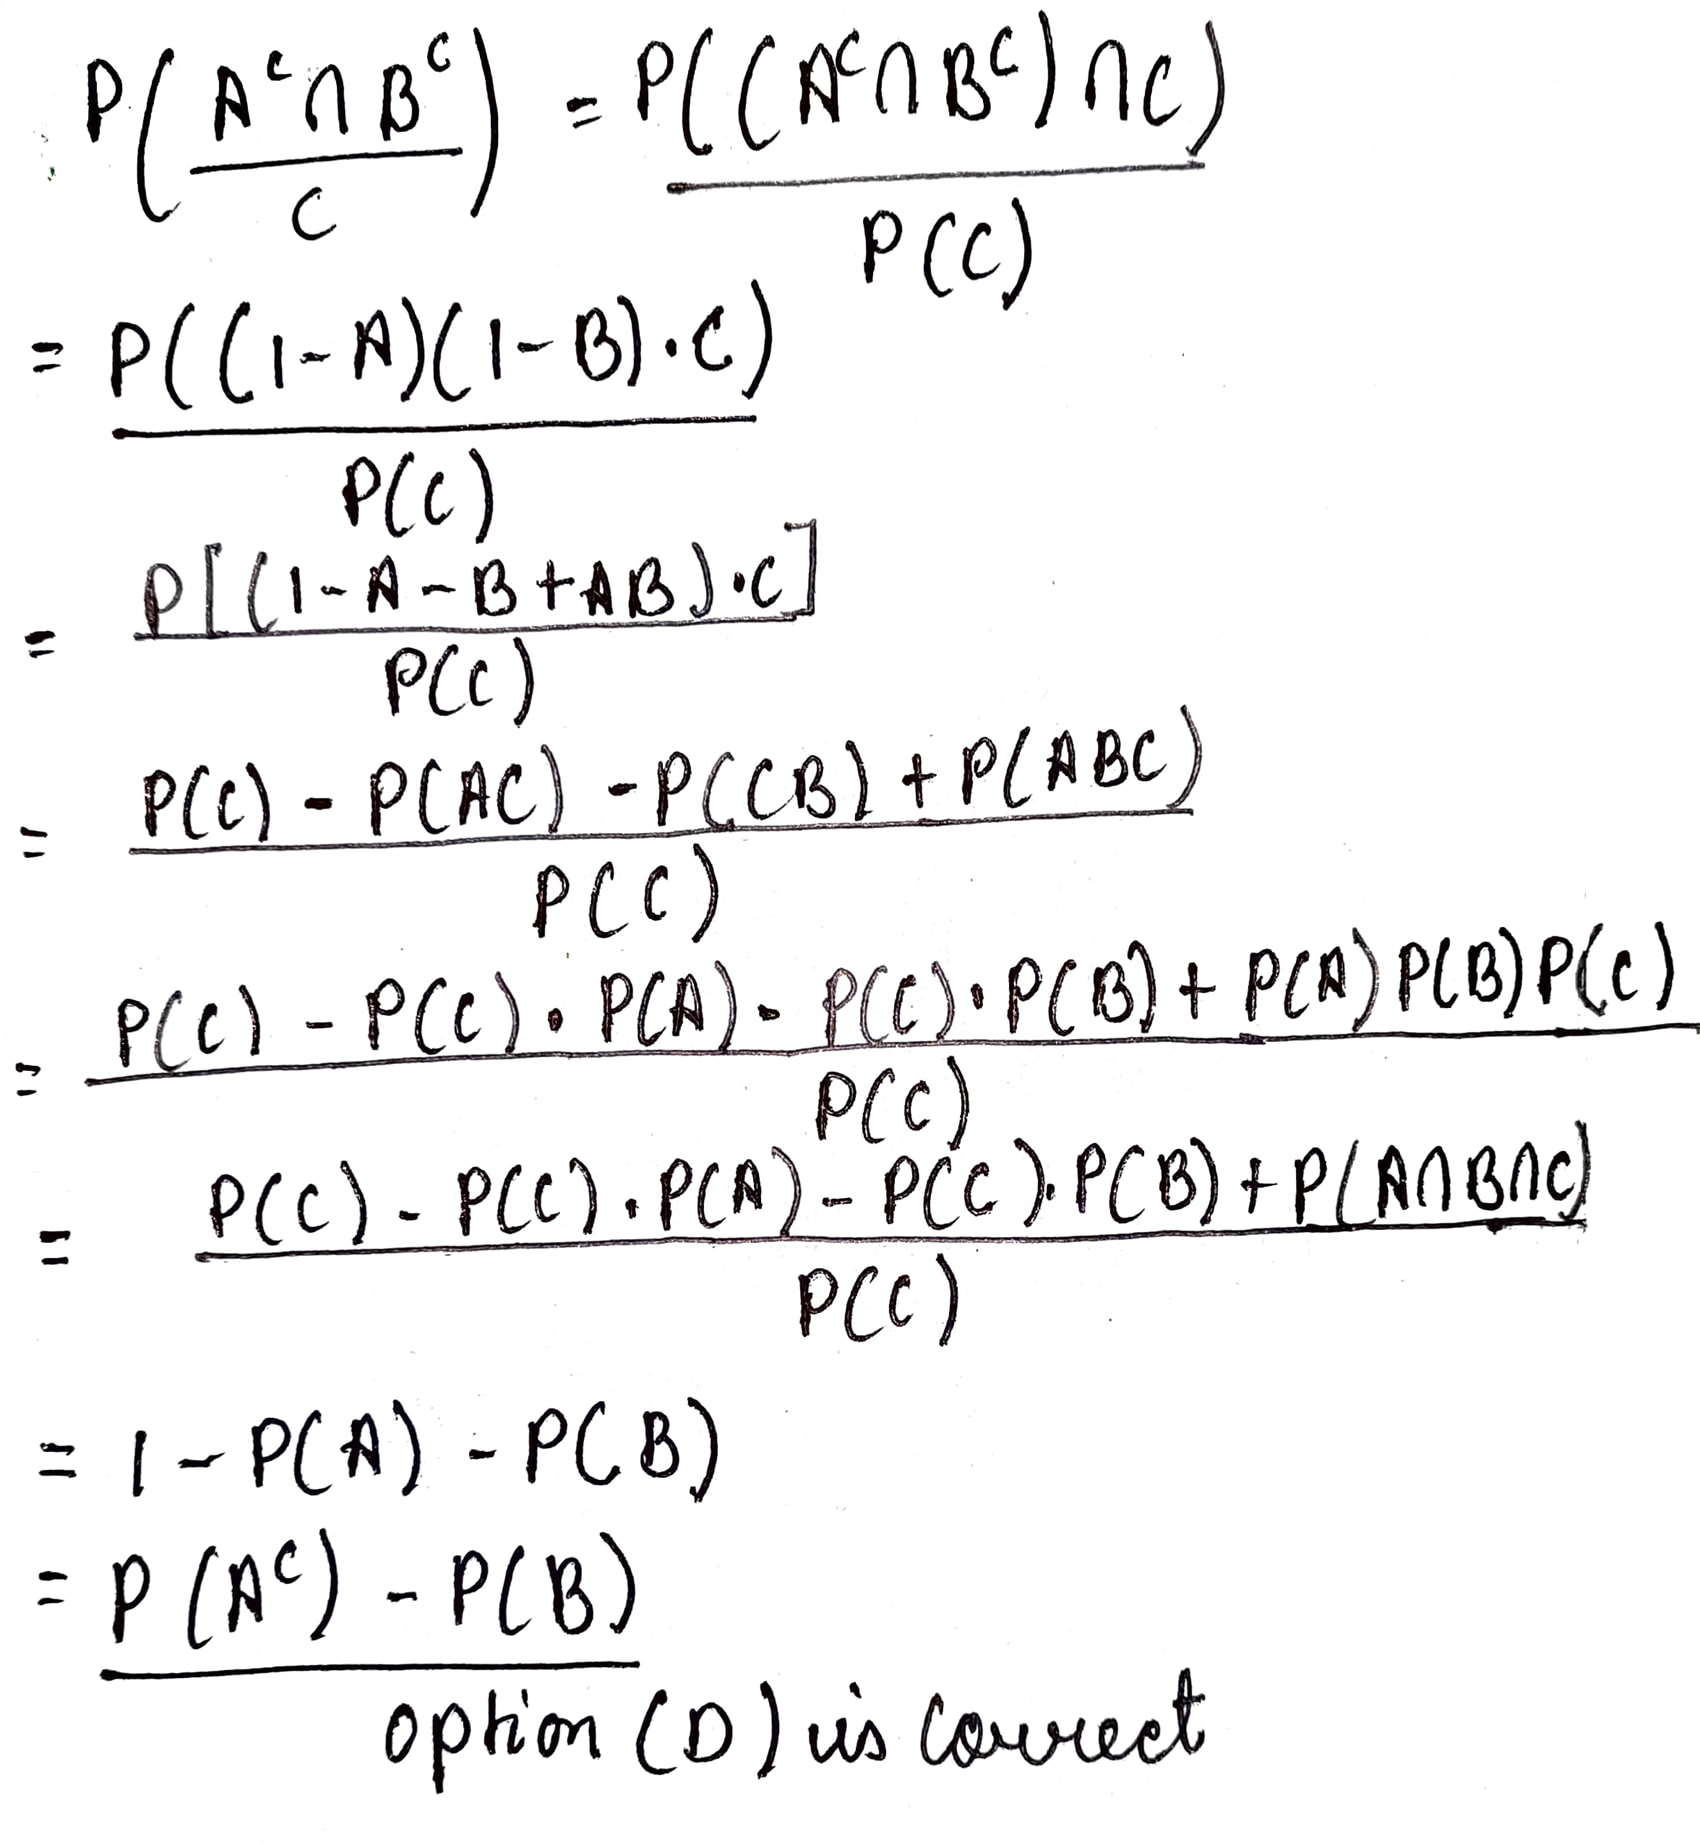 P( (A^c ∩ B^c) / C ) = P((A^c ∩ B^c) ∩ C) / P(C)
= P((1-A)(1-B)·C) / P(C)
= P[(1-A-B+AB)·C] / P(C)
= P(C) - P(AC) - P(CB) + P(ABC) / P(C)
= P(C) - P(C)·P(A) - P(C)·P(B) + P(A)P(B)P(C) / P(C)
= P(C) - P(C)·P(A) - P(C)·P(B) + P(A∩B∩C) / P(C)
= 1 - P(A) - P(B)
= P(A^c) - P(B)
option (D) is correct